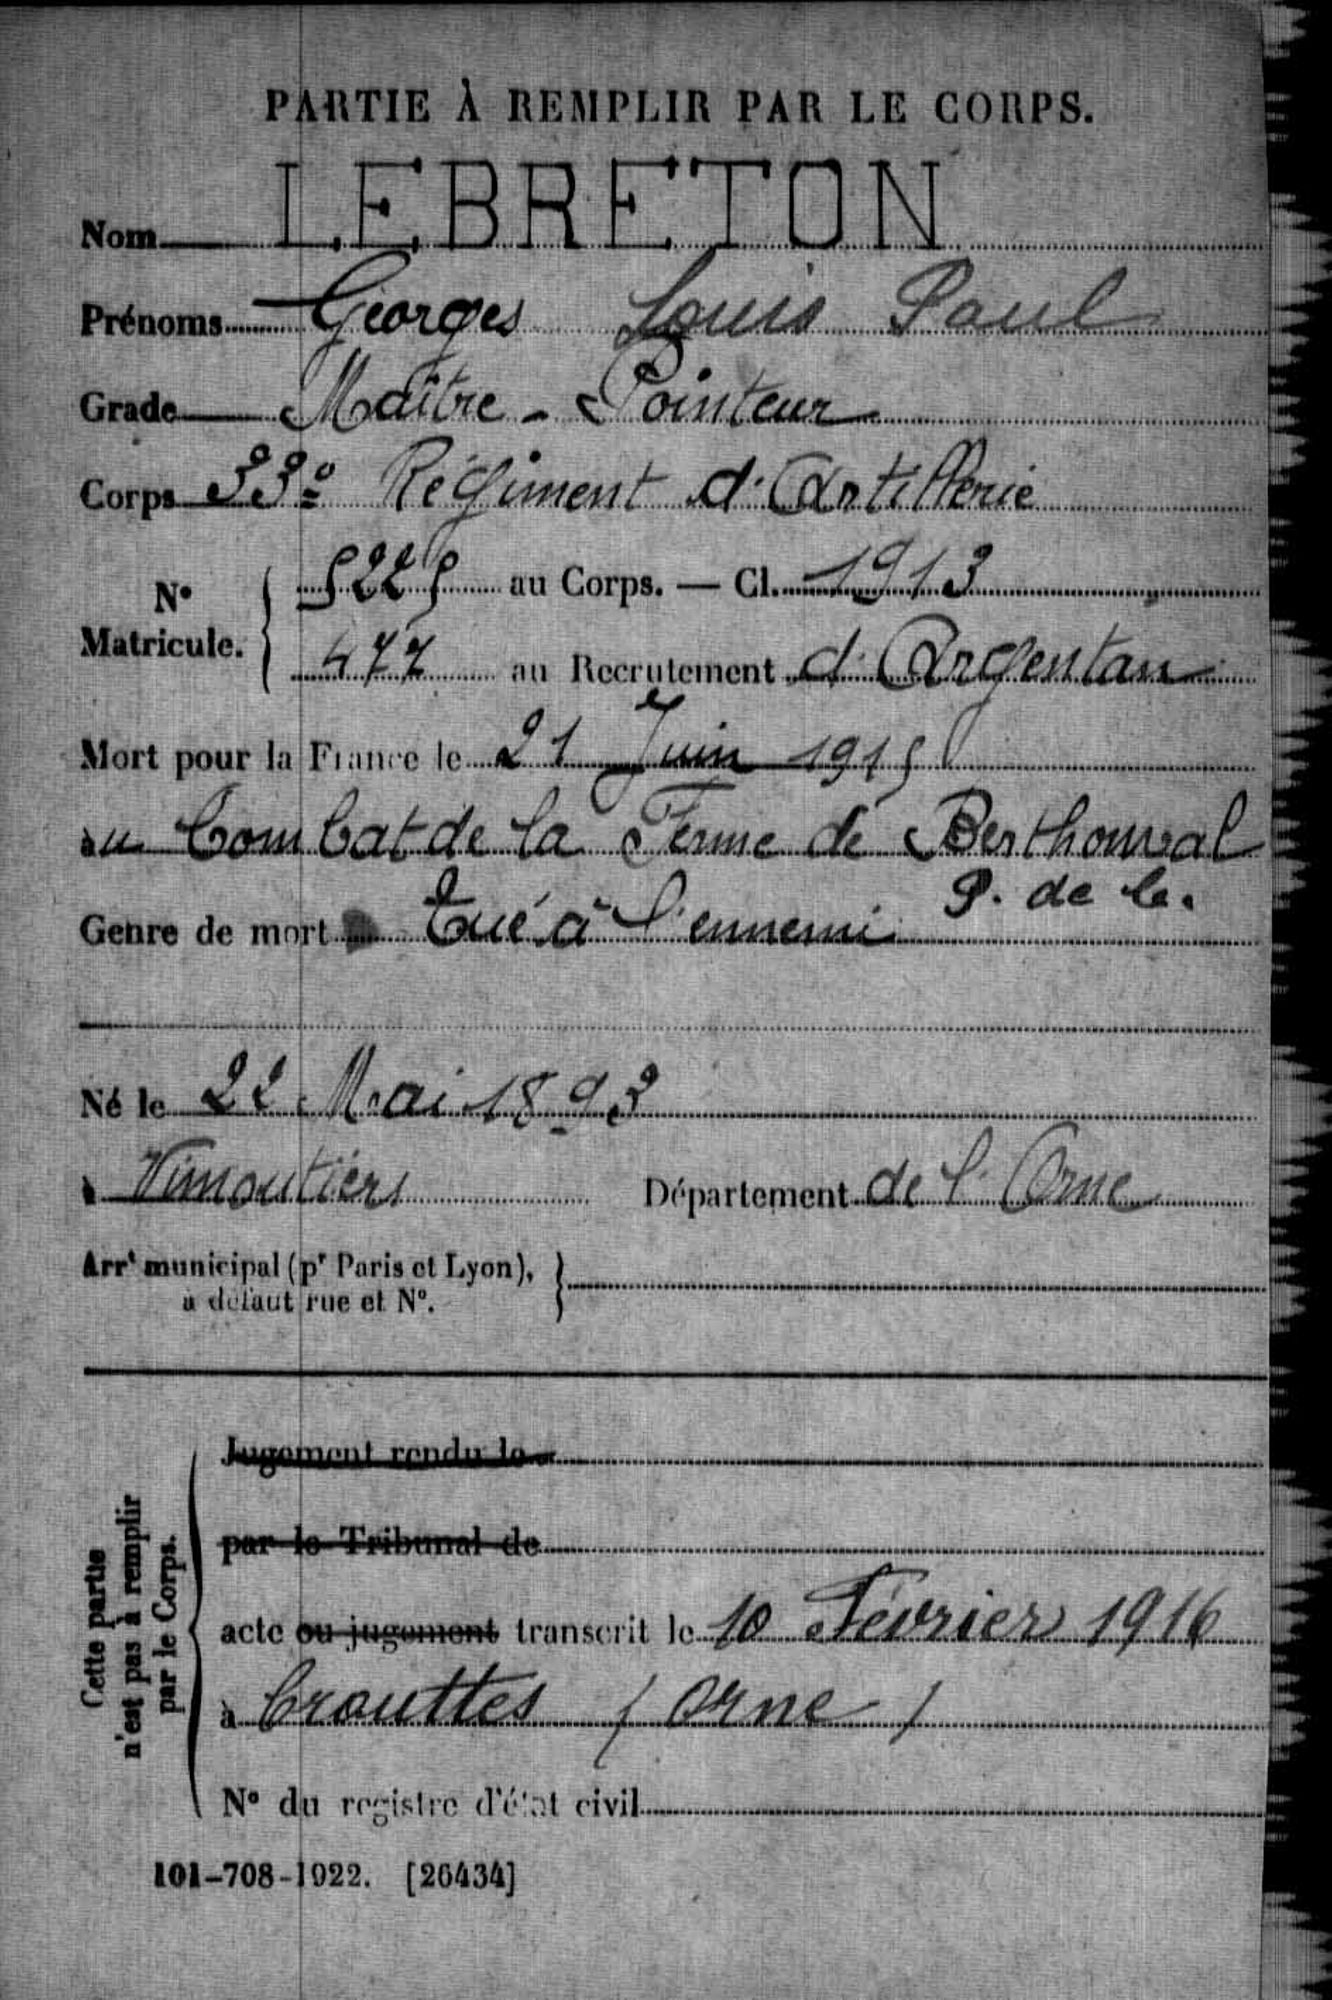 PARTIE À REMPLIR PAR LE CORPS.
Nom LEBRETON
Prénoms Georges Louis Paul
Grade Maître - Pointeur
Corps 33e Régiment d'Artillerie
N° Matricule. { 5225 au Corps. — Cl. 1913
477 au Recrutement d'Argentan
Mort pour la France le 21 Juin 1915
au Combat de la Ferme de Berthonval
P. de C.
Genre de mort Tué à l'ennemi
Né le 22 Mai 1893
à Vimoutiers Département de l'Orne
Arrt municipal (pr Paris et Lyon), }
à défaut rue et N°.
Cette partie
n'est pas à remplir
par le Corps.
Jugement rendu le
par le Tribunal de
acte ou jugement transcrit le 10 Février 1916
à Crouttes (Orne)
N° du registre d'état civil
101-708-1922. [26434]